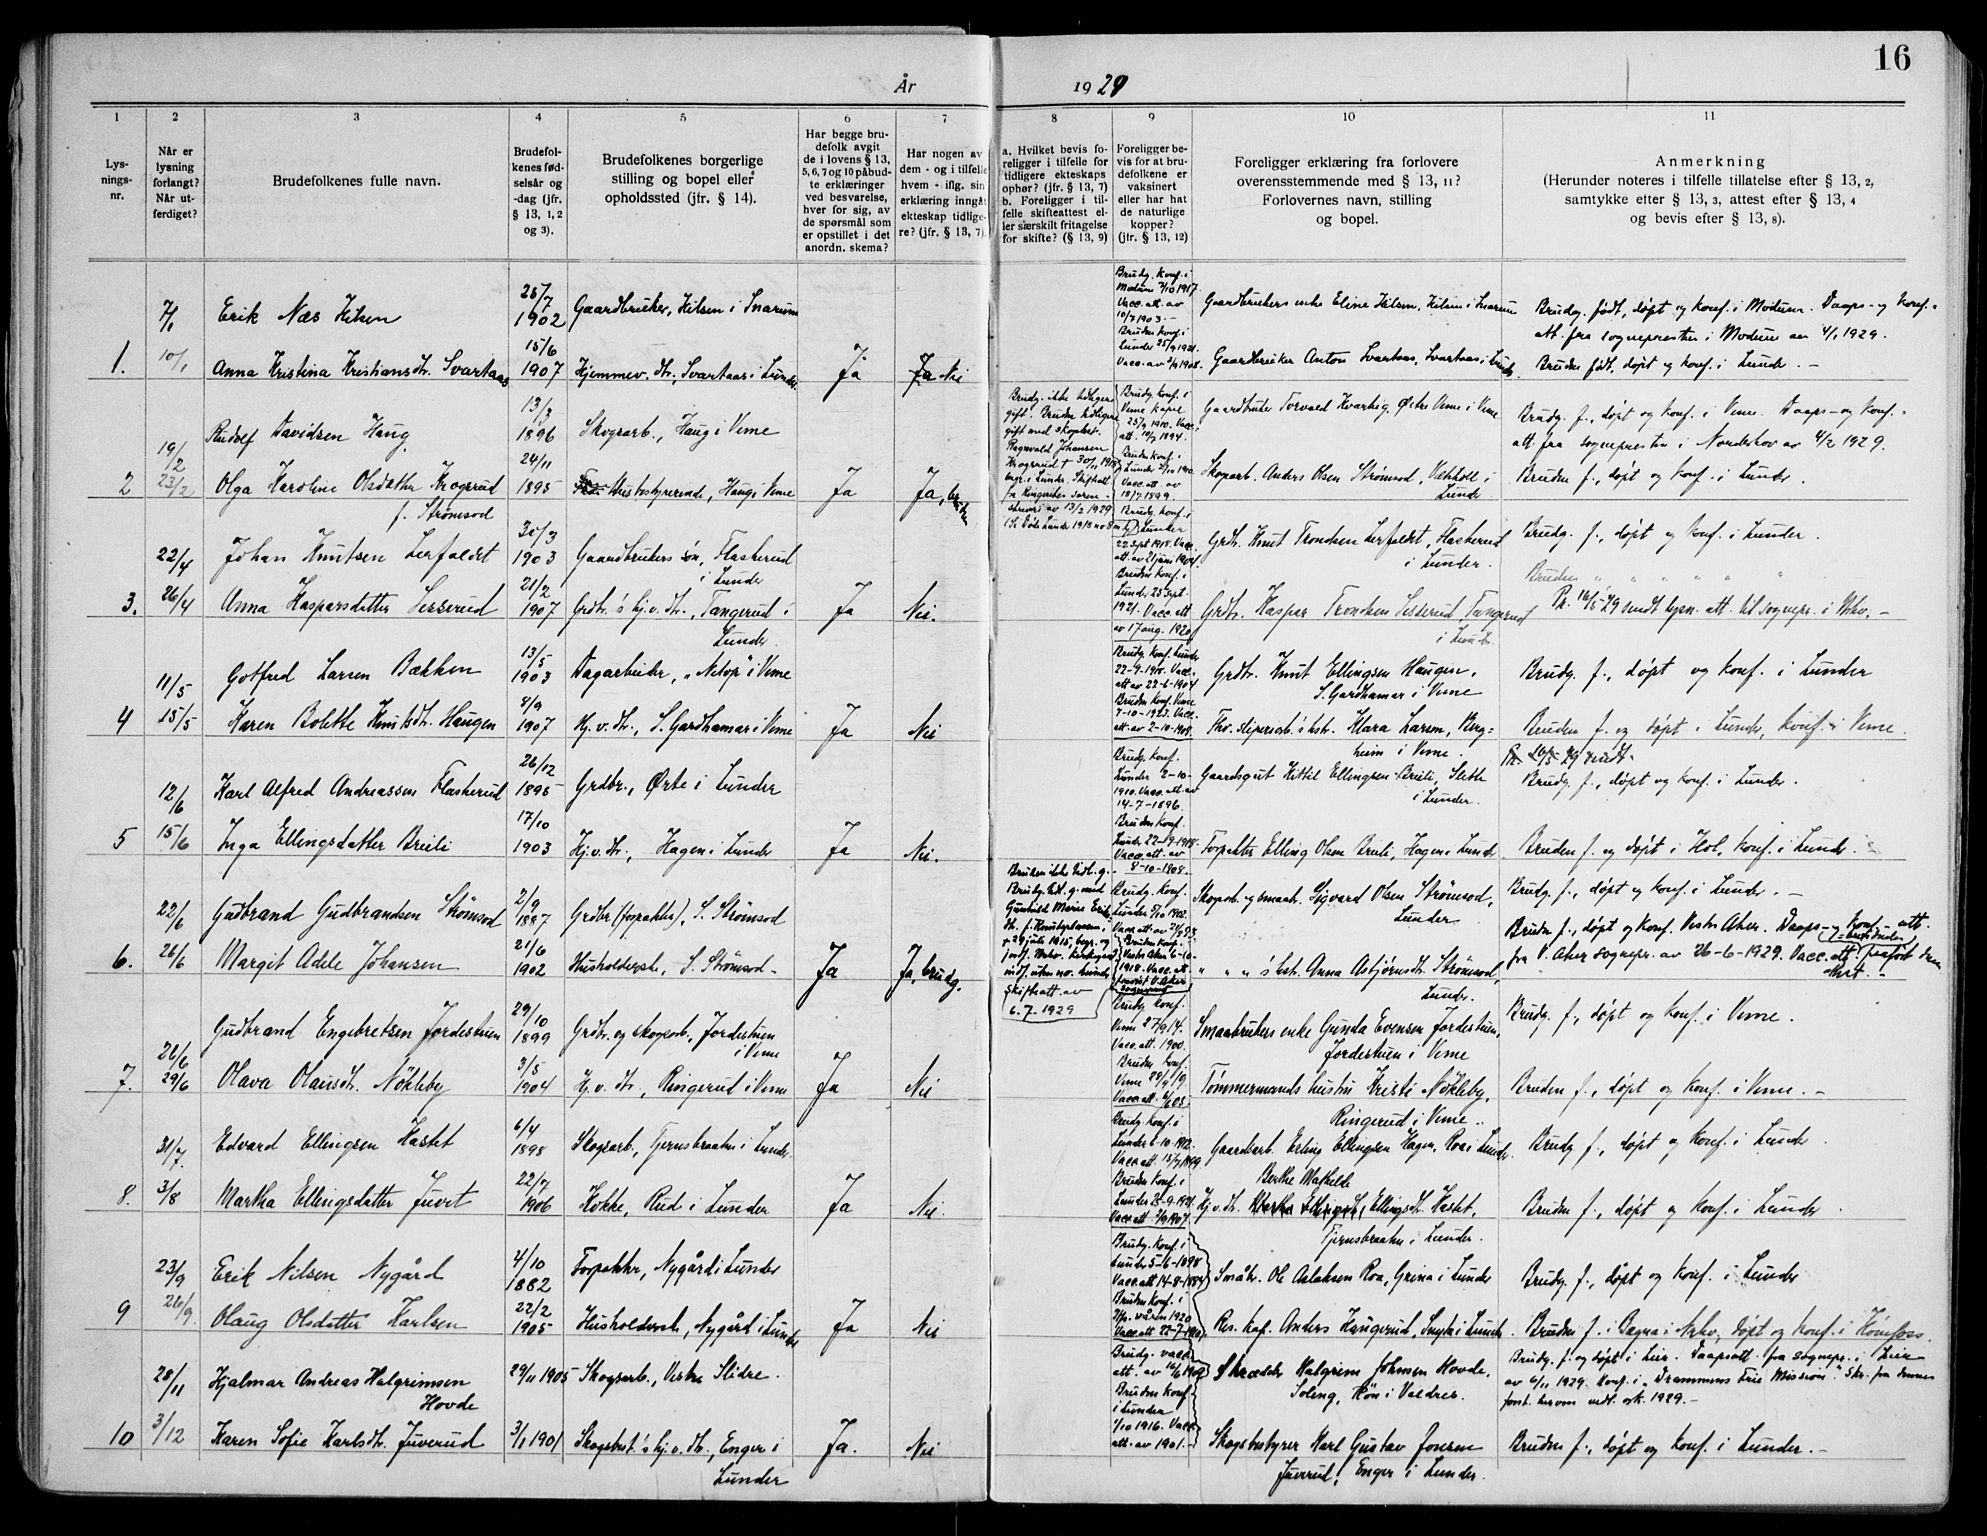 16
År 1929
1 2 3 4 5 6 7 8 9 10 11
Lysnings-nr.
Når er lysning forlangt? Når utferdiget?
Brudefolkenes fulle navn.
Brudefolkenes fødselsår og -dag (jfr. § 13, 1, 2 og 3).
Brudefolkenes borgerlige stilling og bopel eller opholdssted (jfr. § 14).
Har begge brudefolk avgit de i lovens § 13, 5, 6, 7 og 10 påbudte erklæringer ved besvarelse, hver for sig, av de spørsmål som er opstillet i det anordn. skema?
Har nogen av dem - og i tilfelle hvem - iflg. sin erklæring inngåt ekteskap tidligere? (jfr. § 13, 7).
a. Hvilket bevis foreligger i tilfelle for tidligere ekteskaps ophør? (jfr. § 13, 7)
b. Foreligger i tilfelle skifteattest eller særskilt fritagelse for skifte? (§ 13, 9)
Foreligger bevis for at brudefolkene er vaksinert eller har hat de naturlige kopper? (jfr. § 13, 12)
Foreligger erklæring fra forlovere overensstemmende med § 13, 11? Forlovernes navn, stilling og bopel.
Anmerkning
(Herunder noteres i tilfelle tillatelse efter § 13, 2, samtykke efter § 13, 3, attest efter § 13, 4 og bevis efter § 13, 8).
7/1 Erik Næs Hilsen 25/7 1902 Gaardbruker, Hilsen i Snarum
Brudg. konf. i Modum 7/10 1917. Vacc. att. av 10/7 1903. -
Gaardbrukers enke Eline Hilsen, Hilsen i Snarum
Brudg. født, døpt og konf. i Modum. Daaps- og konf.-att. fra sognepresten i Modum av 4/1 1929.
1. 10/1 Anna Kristina Kristiansdtr. Svartaas 15/6 1907 Hjemmev. dtr., Svartaas i Lunder Ja Ja Nei
Bruden konf. i Lunder 25/9 1921. Vacc. av 2/9 1908.
Gaardbruker Anton Svartaas, Svartaas i Lunder.
Bruden født, døpt og konf. i Lunder. -
19/2 Rudolf Davidsen Haug 13/3 1896 Skogsarb., Haug i Veme
Brudg. ikke tidligere gift. Bruden tidligere gift med skogsarb. Ragnvald Johansen Krogerud † 30/11 1918 begr. i Lunder. Skifteatt. fra Ringerikes sorenskriveri av 13/2 1929
Brudg. konf. i Veme kapel 25/9 1910. Vacc. att. 19/7 1894.
Gaardbruker Torvald Kvarberg, Østre Veme i Veme
Brudg. f., døpt og konf. i Veme. Daaps- og konf.-att. fra sognepresten i Norderhov av 4/2 1929.
2 23/2 Olga Karoline Olsdatter Krogerud f. Strømsod 24/11 1895 Husbestyrerinde, Haug i Veme Ja Ja, bruden
Bruden konf. i Lunder 2/10 1910. Vacc. att. av 18/7 1899.
Skogarb. Anders Olsen Strømsod, i Lunder
Bruden f., døpt og konf. i Lunder.
22/4 Johan Knutsen Lerfaldet 30/3 1903 Gaardbrukers søn, Flaskerud i Lunder
Brudg. konf. i Lunder 22 sept 1918. Vacc. att. av 21 juni 1904.
Grdbr. Knut Trondsen Lerfaldet, Flaskerud i Lunder.
Brudg. f., døpt og konf. i Lunder.
3. 26/4 Anna Kaspersdatter Sesserud 21/2 1907 Grdbr.'s hj.v. dtr., Tangerud i Lunder Ja Nei.
Bruden konf. i Lunder 25 sept. 1921. Vacc. att. av 17 aug. 1920
Grdbr. Kasper Trondsen Sesserud, Tangerud i Lunder.
Bruden " " " " " "
Pr. 16/5 29 sendt lysn. att. til sognepr. i Nrhv. -
11/5 Gotfred Larsen Bækken 13/5 1903 Dagarbeider, "Netop" i Veme
Brudg. konf. Lunder 22-9-1918. Vacc. att av 22-6-1904
Grdbr. Knut Ellingsen Haugen, S. Gardhamar i Veme
Brudg. f., døpt og konf. i Lunder
4 15/5 Karen Bolette Knutsdtr. Haugen 8/9 1907 Hj. v. dtr., S. Gardhamar i Veme Ja Nei
Bruden konf. Veme 7-10-1923. Vacc. att. av 2-10-1908.
Fhv. sliperiarb.'s hstr. Klara Larsen, Bergheim i Veme.
Bruden f. og døpt i Lunder, konf. i Veme.
Pr. 16/5 29 sendt.
12/6 Karl Alfred Andreassen Flaskerud 26/12 1895 Grdbr., Ørte i Lunder
Brudg. konf. Lunder 2-10-1910. Vacc. att. av 14-7-1896
Gaardsgut Kittil Ellingsen Breili, Sletto i Lunder.
Brudg. f., døpt og konf. i Lunder.
5 15/6 Inga Ellingsdatter Breili 17/10 1903 Hj.v. dtr., Hagen i Lunder Ja Nei.
Bruden konf. Lunder 22-9-1918. Vacc. att. av 8-10-1908.
Forpakter Elling Olsen Breili, Hagen i Lunder
Bruden f. og døpt i Hol, konf. i Lunder.
22/6 Gudbrand Gudbrandsen Strømsod 2/9 1887 Grdbr. (forpakter), S. Strømsod
Bruden ikke tidl. g. Brudg. tidl. g. med Gunhild Marie
† 29 juli 1915, begr. Skifteatt. av 6.7.1929
Brudg. konf. Lunder 5/10 1902. Vacc. att. av
Skogarb. og smaabr. Sigvard Olsen Strømsod, Lunder
Brudg. f., døpt og konf. i Lunder. -
6. 26/6 Margit Adele Johansen 21/6 1902 Husholderske, S. Strømsod Ja Ja, brudg.
Bruden konf. Vestre Aker 6-10-1918. Vacc. att.
" " " 's hstr. Anna Asbjørnsdtr. Strømsod, Lunder.
Bruden f., døpt og konf. Vestre Aker. Daaps- og konf.-att. fra V. Aker sognepr. av 26-6-1929. Vacc. att.
26/6 Gudbrand Engebretsen Jordestuen 29/10 1899 Grdbr. og skogsarb., Jordestuen i Veme
Brudg. konf. Veme 27/9 14. Vacc. att. 1900.
Smaabrukers enke Gunda Evensen Jordestuen, Jordestuen i Veme
Brudg. f., døpt og konf. i Veme.
7. 29/6 Olava Olausdtr. Nökleby 3/5 1904 Hj. v. dtr., Ringerud i Veme Ja Nei
Bruden konf. Veme 28/9 19. Vacc. att. 6/6 05.
Tømmermands hustru Kristi Nökleby, Ringerud i Veme..
Bruden f., døpt og konf. i Veme. -
31/7. Edvard Ellingsen Hastet 6/4 1898 Skogsarb., Tjernsbraaten i Lunder
Brudg. konf. i Lunder 6-10-1912. Vacc. att. 15/7 1899.
Gaardarb. Erling Ellingsen Hagen, Roa i Lunder
Brudg. f., døpt og konf. i Lunder.
8. 3/8 Martha Ellingsdatter Juvet 22/7 1906 Kokke, Rud i Lunder Ja Nei.
Bruden konf. i Lunder 25-9-1921. Vacc. att. 2/9 1907.
Hj. v. dtr. Berthe Mathilde Ellingsdtr. Hastet, Tjernsbraaten i Lunder.
Bruden f., døpt og konf. i Lunder.
23/9 Erik Nilsen Nygård 4/10 1882 Forpakter, Nygård i Lunder
Brudg. konf. i Lunder 5-6-1898 Vacc. att. 14-8-1884
Småbr. Ole Aslaksen Roa, Grina i Lunder
Brudg. f., døpt og konf. i Lunder
9 26/9 Olaug Olsdatter Karlsen 22/2 1905 Husholderske, Nygård i Lunder Ja Nei
Bruden konf. i våren 1920 Vacc. att 22-7-1907.
Res. kap. Anders Haugerud, i Lunder.
Bruden f. i Begna i Nrhv, døpt og konf. i Hønefoss.
28/11 Hjalmar Andreas Halgrimsen Hovde 29/11 1905 Skogsarb., Vestre Slidre.
Brudg. vacc. att. av 16/6 1909
Skrædder Halgrim Johnsen Hovde, Soleng, Røn i Valdres.
Brudg. f. og døpt i Lier. Daapsatt. fra sognepr. i Lier av 6/11 1929. Konf. i "Drammens Frie Mission". Skr. fra dennes forst. herom vedt. ok. 1929. -
10 3/12 Karen Sofie Karlsdtr. Juverud 3/1 1901 Skogbest's hj.v. dtr., Enger i Lunder Ja. Nei
Bruden konf. i Lunder 1/10 1916. Vacc. att. av 1901. -
Skogbestyrer Karl Gustav Jonsen Juverud, Enger i Lunder.
Bruden f., døpt og konf. i Lunder. -